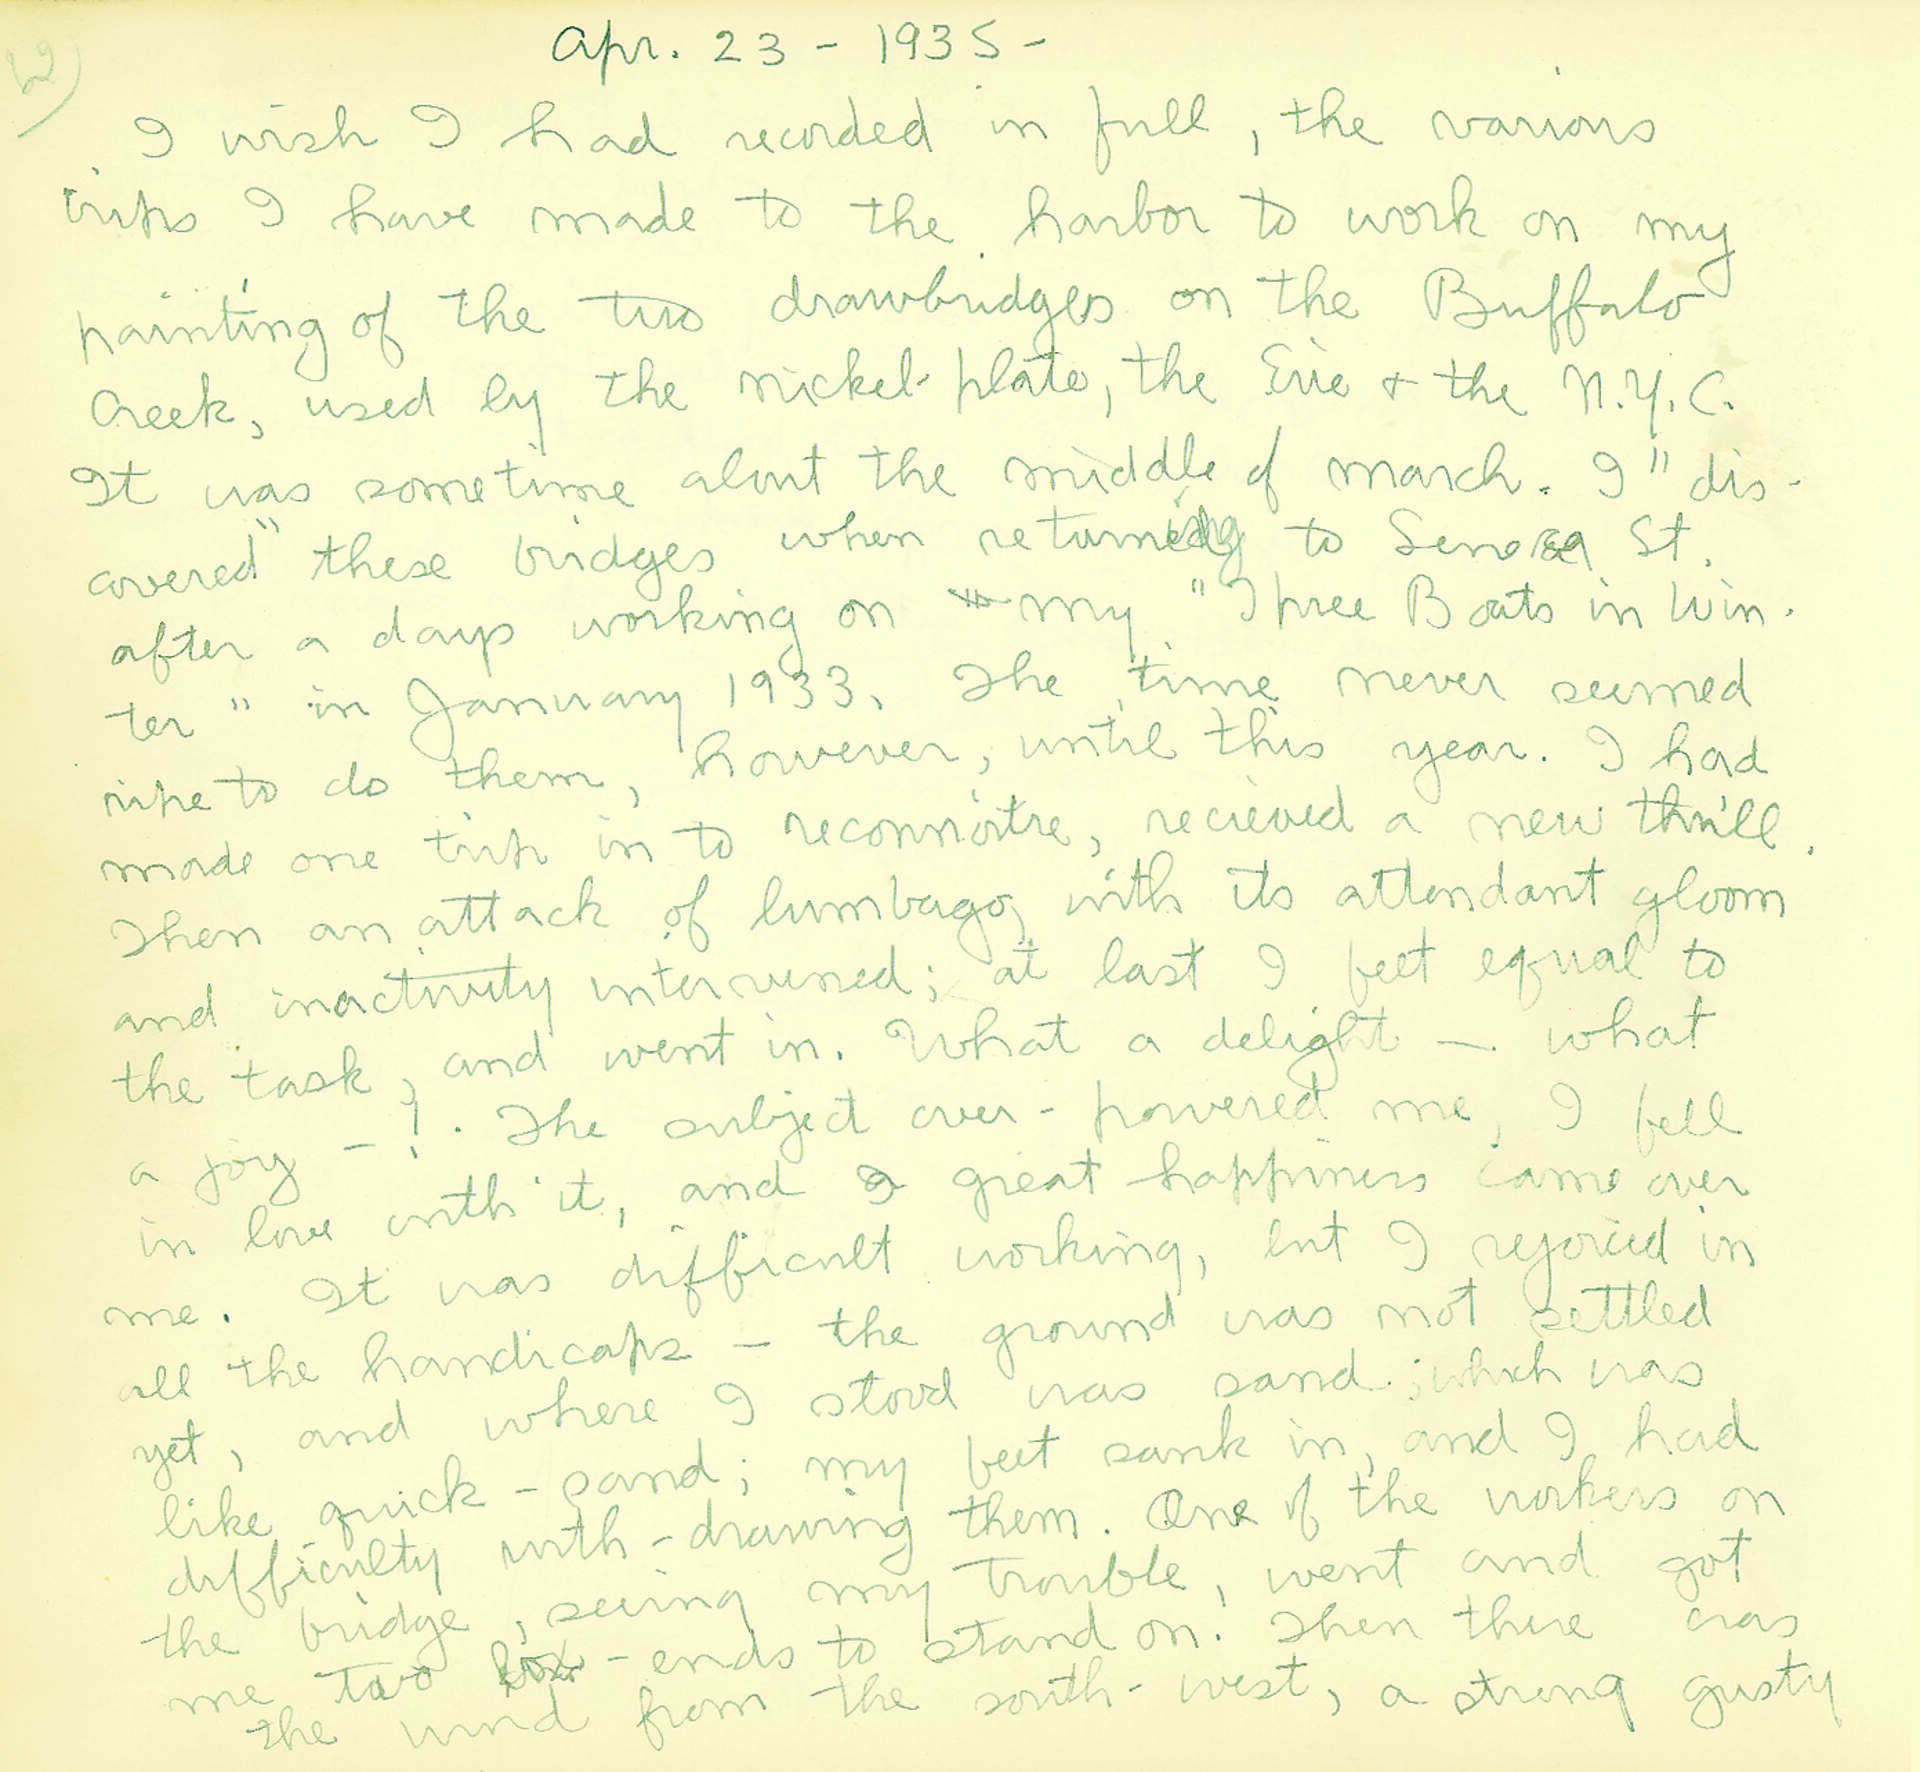 Apr. 23 - 1935 -
I wish I had recorded in full, the various
trips I have made to the harbor to work on my
painting of the two drawbridges on the Buffalo
Creek, used by the nickel-plate, the Erie + the N.Y.C.
It was sometime about the middle of march. I "dis-
covered" these bridges when returning to Seneca St.
after a days working on my "Three Boats in Win-
ter" in January 1933. The time never seemed
ripe to do them, however, until this year. I had
made one trip in to reconnoitre, recieved a new thrill.
Then an attack of lumbago, with its attendant gloom
and inactivity intervened; at last I felt equal to
the task, and went in. What a delight — what
a joy —!. The subject over-powered me, I fell
in love with it, and a great happiness came over
me. It was difficult working, but I rejoiced in
all the handicaps — the ground was not settled
yet, and where I stood was sand; which was
like quick-sand; my feet sank in, and I had
difficulty with-drawing them. One of the workers on
the bridge, seeing my trouble, went and got
me two box-ends to stand on! Then there was
the wind from the south-west, a strong gusty